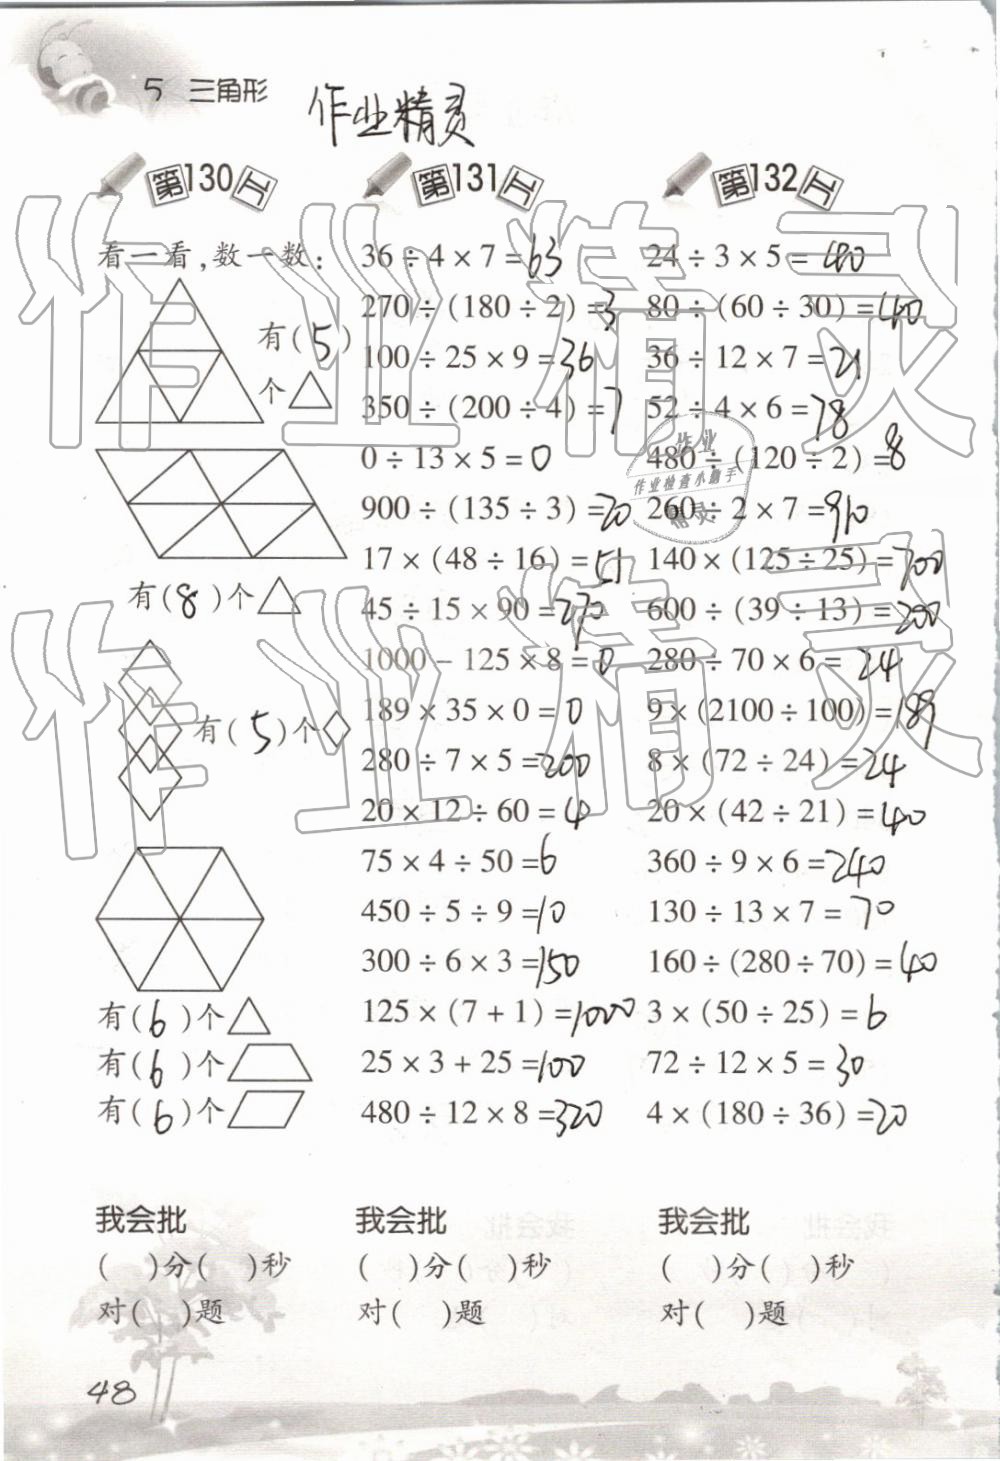 5 三角形
作业精灵
第130天
看一看,数一数:
有(5)
个△
有(8)个△
有(5)个◇
有(6)个△
有(6)个
有(6)个
我会批
( )分( )秒
对( )题
第131天
36÷4×7=63
270÷(180÷2)=3
100÷25×9=36
350÷(200÷4)=7
0÷13×5=0
900÷(135÷3)=20
17×(48÷16)=51
45÷15×90=270
1000-125×8=0
189×35×0=0
280÷7×5=200
20×12÷60=4
75×4÷50=6
450÷5÷9=10
300÷6×3=150
125×(7+1)=1000
25×3+25=100
480÷12×8=320
我会批
( )分( )秒
对( )题
第132天
24÷3×5=40
80÷(60÷30)=40
36÷12×7=21
52÷4×6=78
480÷(120÷2)=8
260÷2×7=910
140×(125÷25)=700
600÷(39÷13)=200
280÷70×6=24
9×(2100÷100)=189
8×(72÷24)=24
20×(42÷21)=40
360÷9×6=240
130÷13×7=70
160÷(280÷70)=40
3×(50÷25)=6
72÷12×5=30
4×(180÷36)=20
我会批
( )分( )秒
对( )题
48
作业精灵
作业精灵
作业
作业检查小助手
精灵